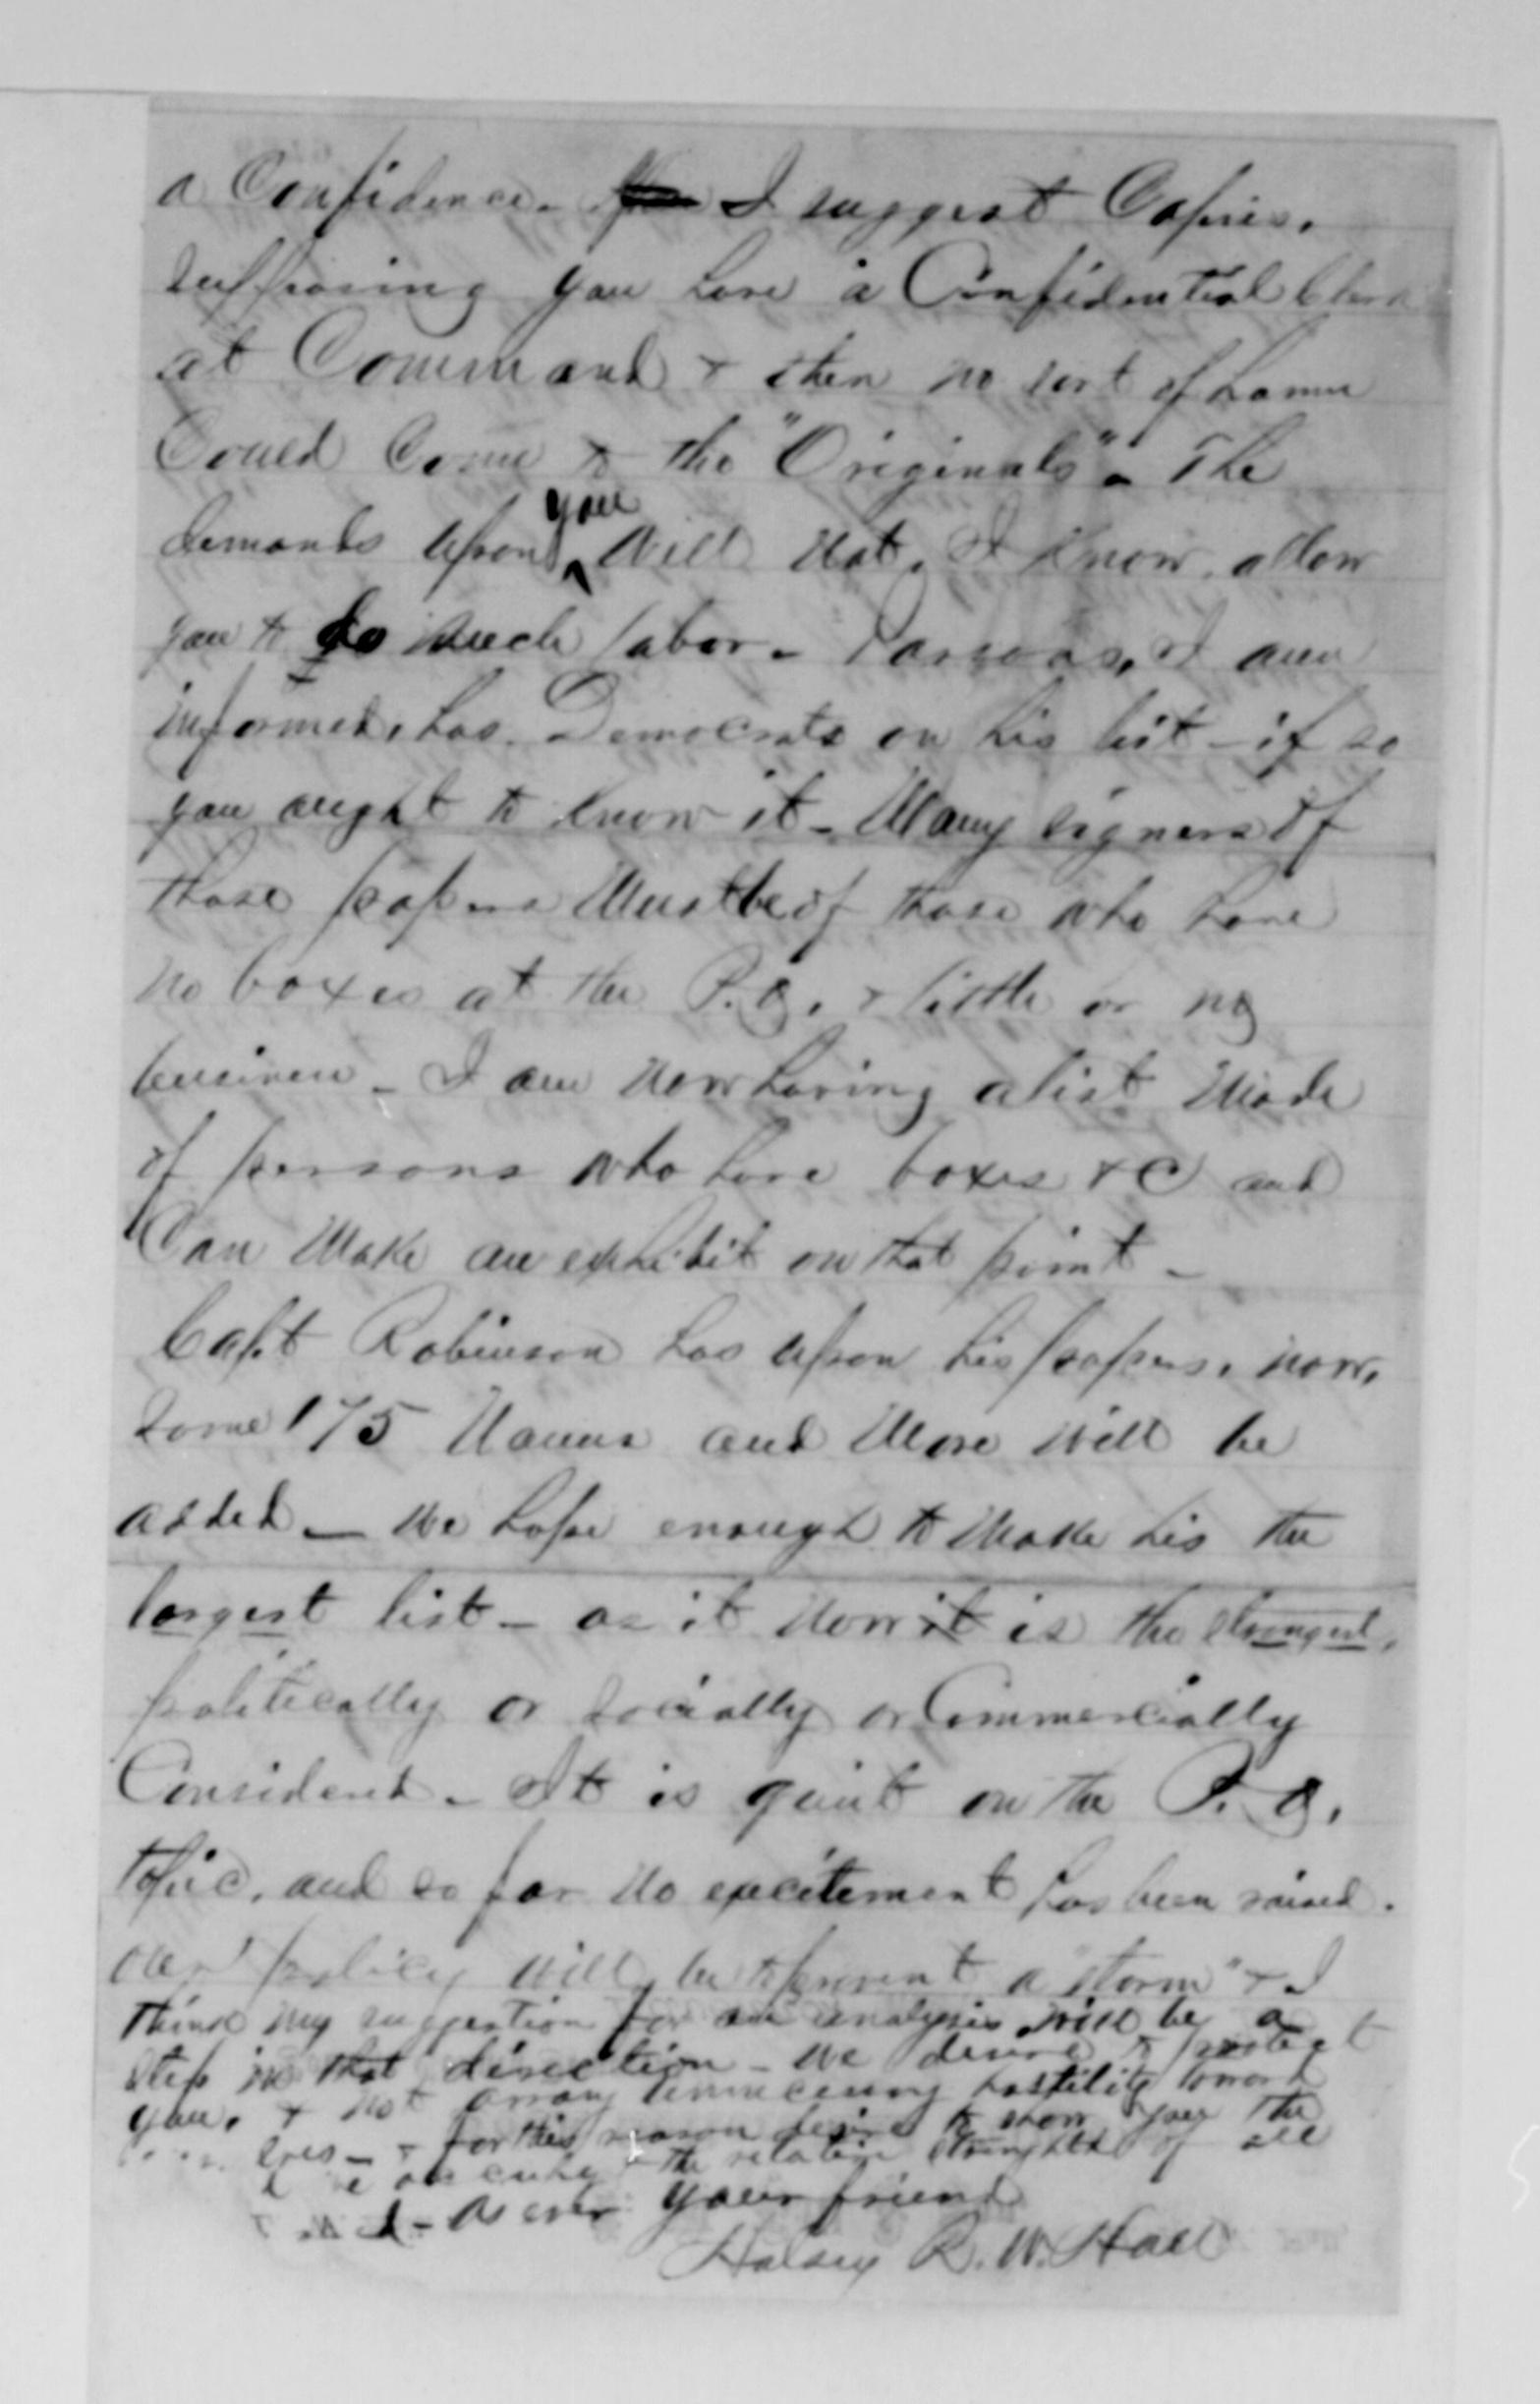 a Confidence. I suggest Copies,
supposing you have a Confidential Clerk
at Command & then no sort of harm
Could Come to the "Originals". The
demands upon you will not, I know, allow
you to do such labor. Parsons, I am
informed, has Democrats on his list - if so
you aught to know it. Many signers of
those papers must be of those who have
no boxes at the P.O. & little or no
business - I am now having a list made
of persons who have boxes &C and
Can make an exhibit on that point -
Capt Robinson has upon his papers, now,
some 175 Names and More will be
added - we hope enough to make his the
largest list - as it now it is the strongest,
politically or socially or Commercially
Considered. It is quiet on the P.O.
topic, and so far no excitement has been raised.
Our policy will be to prevent a "storm" & I
think my suggestion for an analysis will be a
step in that direction - we desire to protect
you, & not array hostility toward
& for this reason desire to show you the
the relative strength of all
As ever your friend
Halsey R. W. Hall